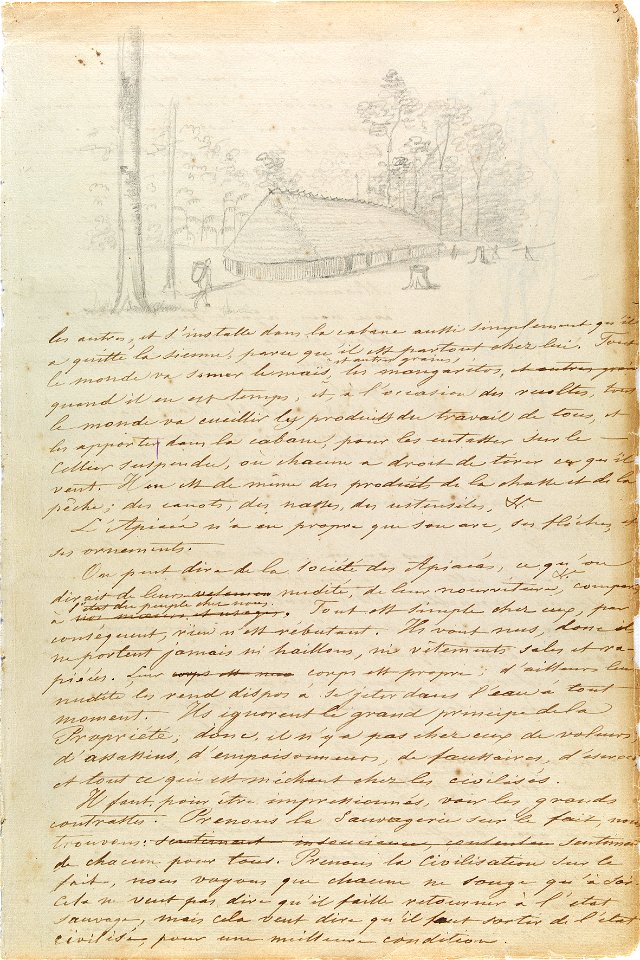 3
les autres, et s'installe dans la cabane aussi simplement qu'il
a quitté la sienne, parce qu'il est partout chez lui. Tout
autres grains,
le monde va semer le maïs, les mangaritos, et autres grains
quand il en est temps, et, à l'occasion des recoltes, tout
le monde va cueillir les produits du travail de tous, et
les apporter dans la cabane, pour les entasser sur le
Cellier suspendu, où chacun a droit de tirer ce qu'il
veut. Il en est de même des produits de la chasse et de la
pêche; des canots, des nasses, des ustensiles, &c.
L'Apiacá n'a en propre que son arc, ses flèches, et
ses ornements.
On peut dire de la Société des Apiacás, ce qu'on
dirait de leur nudité, de leur nourriture, &c compar
l'état du peuple chez nous
à nos mœurs et usages. Tout est simple chez eux, par
conséquent, rien n'est rébutant. Ils vont nus, donc ils
ne portent jamais ni haillons, ni vêtements sales et ra-
piécés. Leur corps est corps est propre; d'ailleurs leur
nudité les rend dispos à se jeter dans l'eau à tout
moment. Ils ignorent le grand principe de la
Propriété; donc, il n'y a pas chez eux de voleurs,
d'assassins, d'empoisonneurs, de faussaires, d'escrocs
et tout ce qui est méchant chez les civilisés.
Il faut, pour être impressionnés, voir les grands
contrastes. Prenons la Sauvagerie sur le fait, nous
trouvons: insouciance, contentem sentiment
de chacun pour tous. Prenons la Civilisation sur le
fait, nous voyons que chacun ne songe qu'à soi.
Cela ne veut pas dire qu'il faille retourner à l'état
sauvage, mais cela veut dire qu'il faut sortir de l'état
civilisé, pour une meilleure condition.